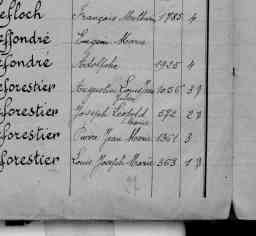 Lefloch François Mathurin 1785 4
Leffondré Eugène Marie
Leffondré Adolphe 1925 4
Leforestier Augustin Louis Jean 1056 3
Leforestier Joseph Léopold 572 2
Marie
Leforestier Pierre Jean Marie 1361 3
Leforestier Louis Joseph Marie 363 1